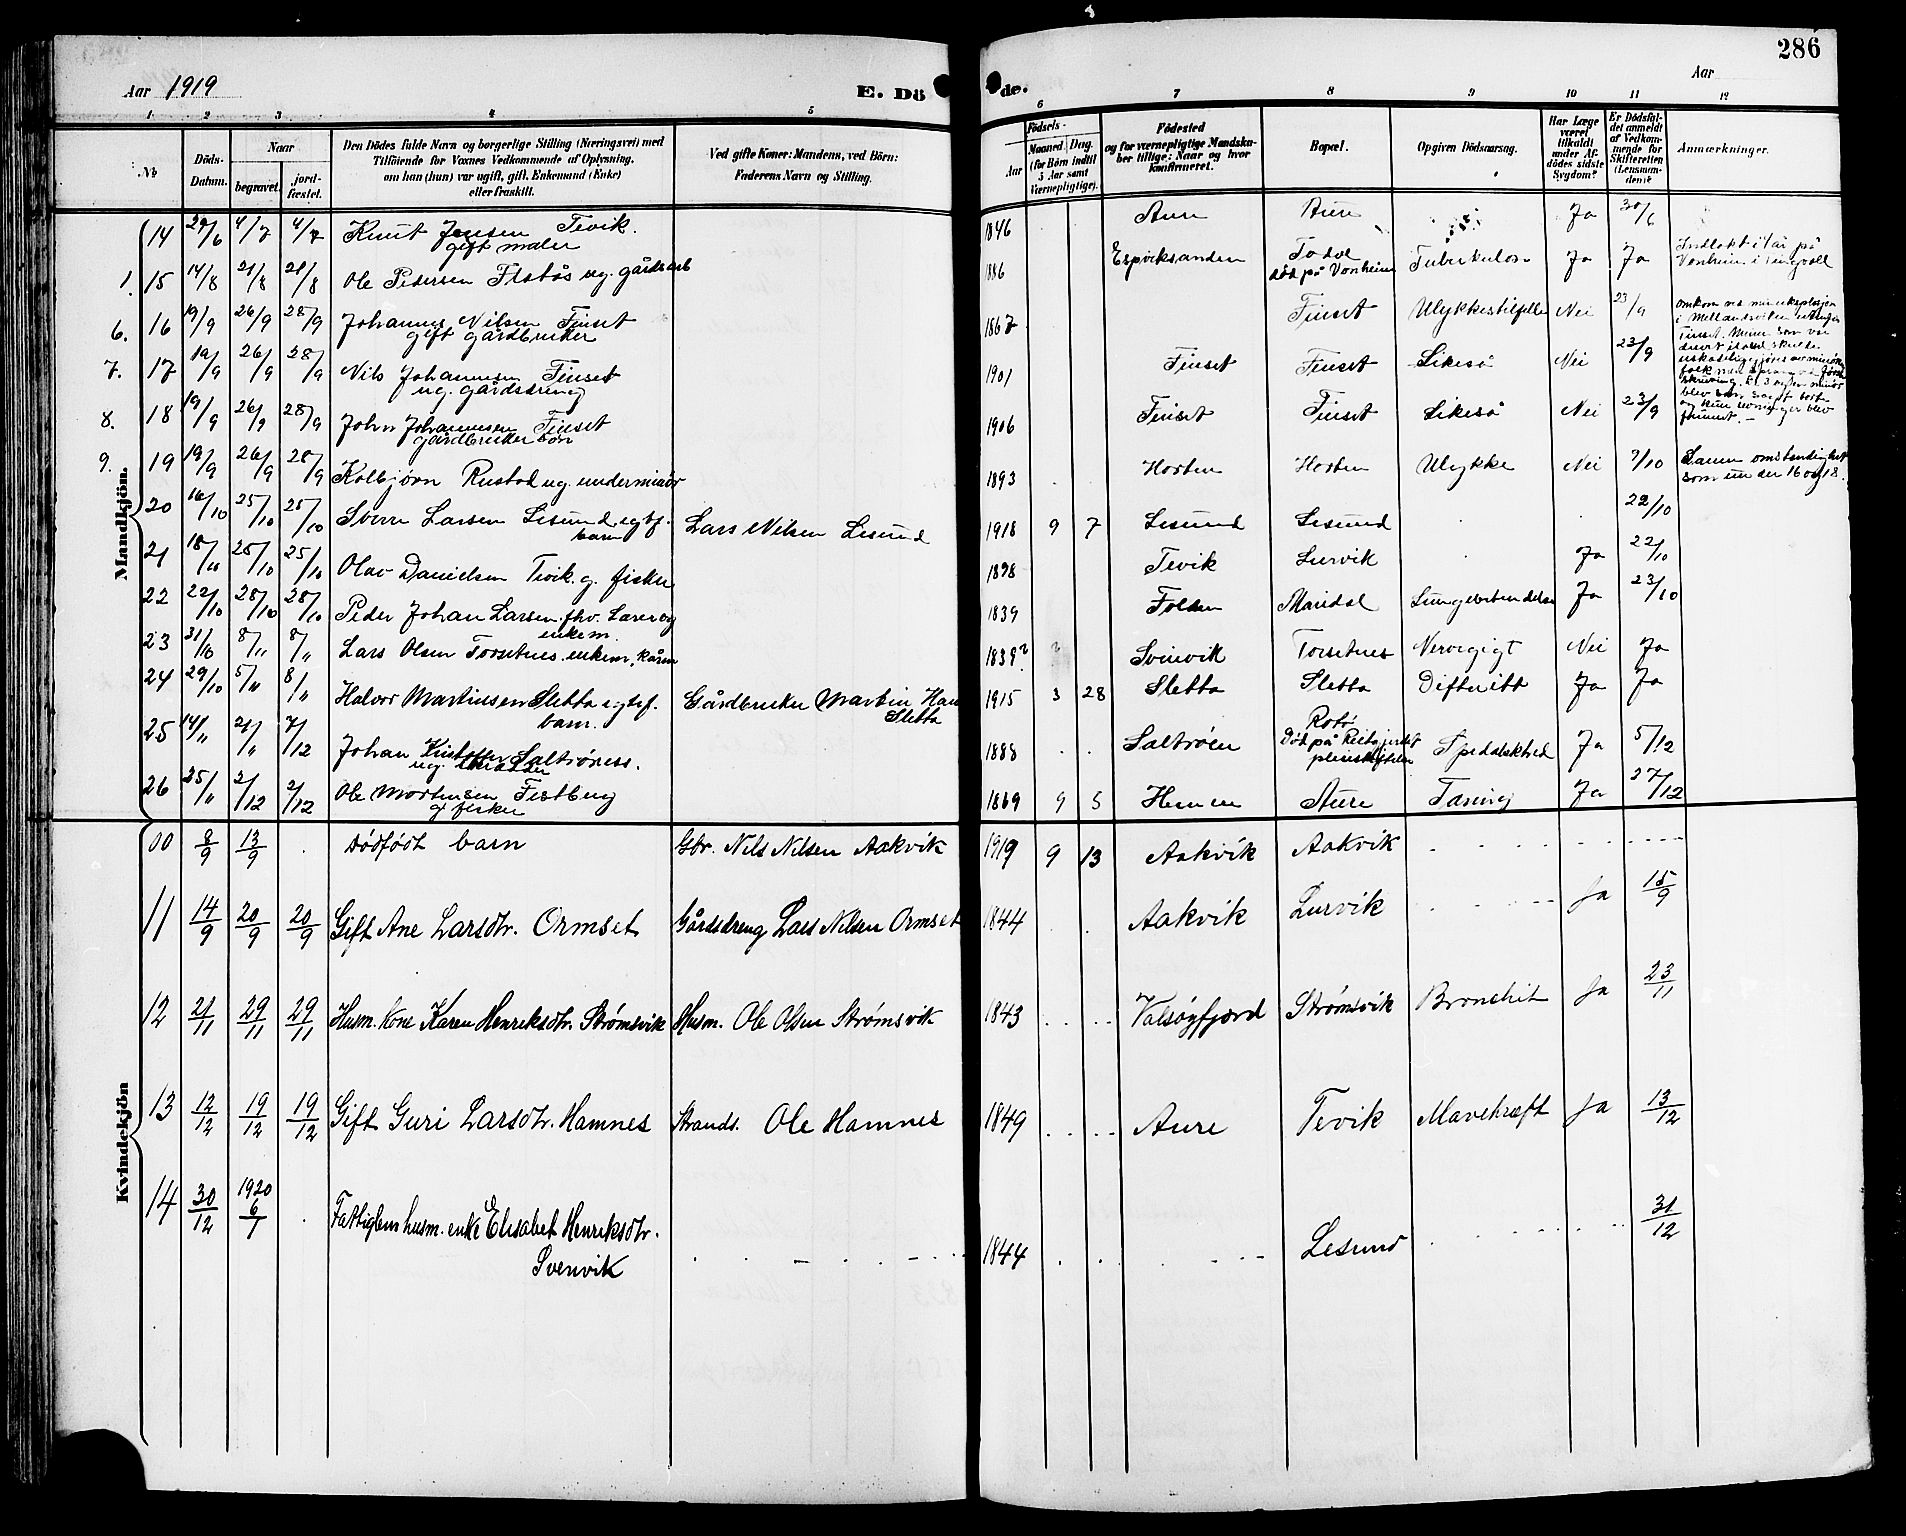 286
Aar 1919
E. Dö
de.
Aar
1. 2 3 4 5 6 7 8 9 10 11 12
No
Döds-
Datum.
Naar
begravet.
jord-
fæstet.
Den Dödes fulde Navn og borgerlige Stilling (Næringsvei) med
Tilföiende for Voxnes Vedkommende af Oplysning,
om han (hun) var ugift, gift, Enkemand (Enke)
eller fraskilt.
Ved gifte Koner: Mandens, ved Börn:
Faderens Navn og Stilling.
Födsels-
Aar
Maaned. Dag.
(for Börn indtil
5 Aar samt
Værnepligtige).
Födested
og for værnepligtige Mandska-
ber tillige: Naar og hvor
konfirmeret.
Bopæl.
Opgiven Dödsaarsag.
Har Læge
været
tilkaldt
under Af-
dödes sidste
Sygdom?
Er Dödsfal-
det anmeldt
af Vedkom-
mende for
Skifteretten
(Lensman-
den)?
Anmærkninger.
Mandkjön.
14 29/6 4/7 4/7 Knut Jensen Tevik. 1846 Aure Aure Ja 30/6
gift maler
1. 15 14/8 21/8 21/8 Ole Pedersen Flatås ug. gårdsarb 1886 Espviksanden Todal Tuberkulose Ja Ja
død på Vonheim
Vonheim i Tingvoll
6. 16 19/9 26/9 28/9 Johannes Nilsen Finset 1867 Finset Ulykkestilfelle Nei 23/9
gift gårdbruker
7. 17 19/9 26/9 28/9 Nils Johannesen Finset 1901 Finset Finset Likeså Nei 23/9
ug. gårdsdreng
8. 18 19/9 26/9 28/9 John Johannesen Finset 1906 Finset Finset Likeså Nei 23/9
gårdbruker søn
9. 19 19/9 26/9 28/9 Kolbjørn Rustad ug. underminør 1893 Horten Horten Ulykke Nei 7/10 Samme omstendighet
som under 16 og 18.
20 16/10 25/10 25/10 Sverre Larsen Lesund egtef. Lars Nilsen Lesund 1918 9 7 Lesund Lesund 22/10
barn
21 18/10 25/10 25/10 Olav Danielsen Tevik. g. fisker 1898 Tevik Lurvik Ja 22/10
22 22/10 28/10 28/10 Peder Johan Larsen fhv. Lærer og 1839 Folden Maridal Lungebetendelse Ja 23/10
enkem.
23 31/10 8/11 8/11 Lars Olsen Torsetnes. enkem, kårm 1839? Svinvik Torsetnes Nervegigt Nei Ja
24 29/10 5/11 8/11 Halvor Martinsen Sletta egtef. Gårdbruker Martin Han 1915 3 28 Sletta Sletta Difteritt Ja Ja
barn. Sletta
25 14/11 21/11 7/12 Johan Saltrøness. 1888 Saltrøen Spedalskhed Ja 5/12
ug.
Død på
26 25/11 2/12 2/12 Ole Mortensen Festberg 1869 9 5 Hemne Aure Tæring Ja 27/12
g. fisker
Kvindekjön
10 8/9 13/9 . Dødfødt barn Gbr. Nils Nilsen Aakvik 1919 9 13 Aakvik Aakvik
11 14/9 20/9 20/9 Gift Ane Larsdtr. Ormset Gårdsdreng Lars Nilsen Ormset 1844 Aakvik Lurvik Ja 15/9
12 21/11 29/11 29/11 Husm. kone Karen Henriksdtr. Strømsvik Husm. Ole Olsen Strømsvik 1843 Valsøyfjord Strømsvik Bronchit Ja 23/11
13 12/12 19/12 19/12 Gift Guri Larsdtr. Hamnes Strands. Ole Hamnes 1849 Aure Tevik Mavekræft Ja 13/12
14 30/12 1920 6/1 . Fattiglem husm. enke Elisabet Henriksdtr. 1844 Lesund 31/12
Svenvik